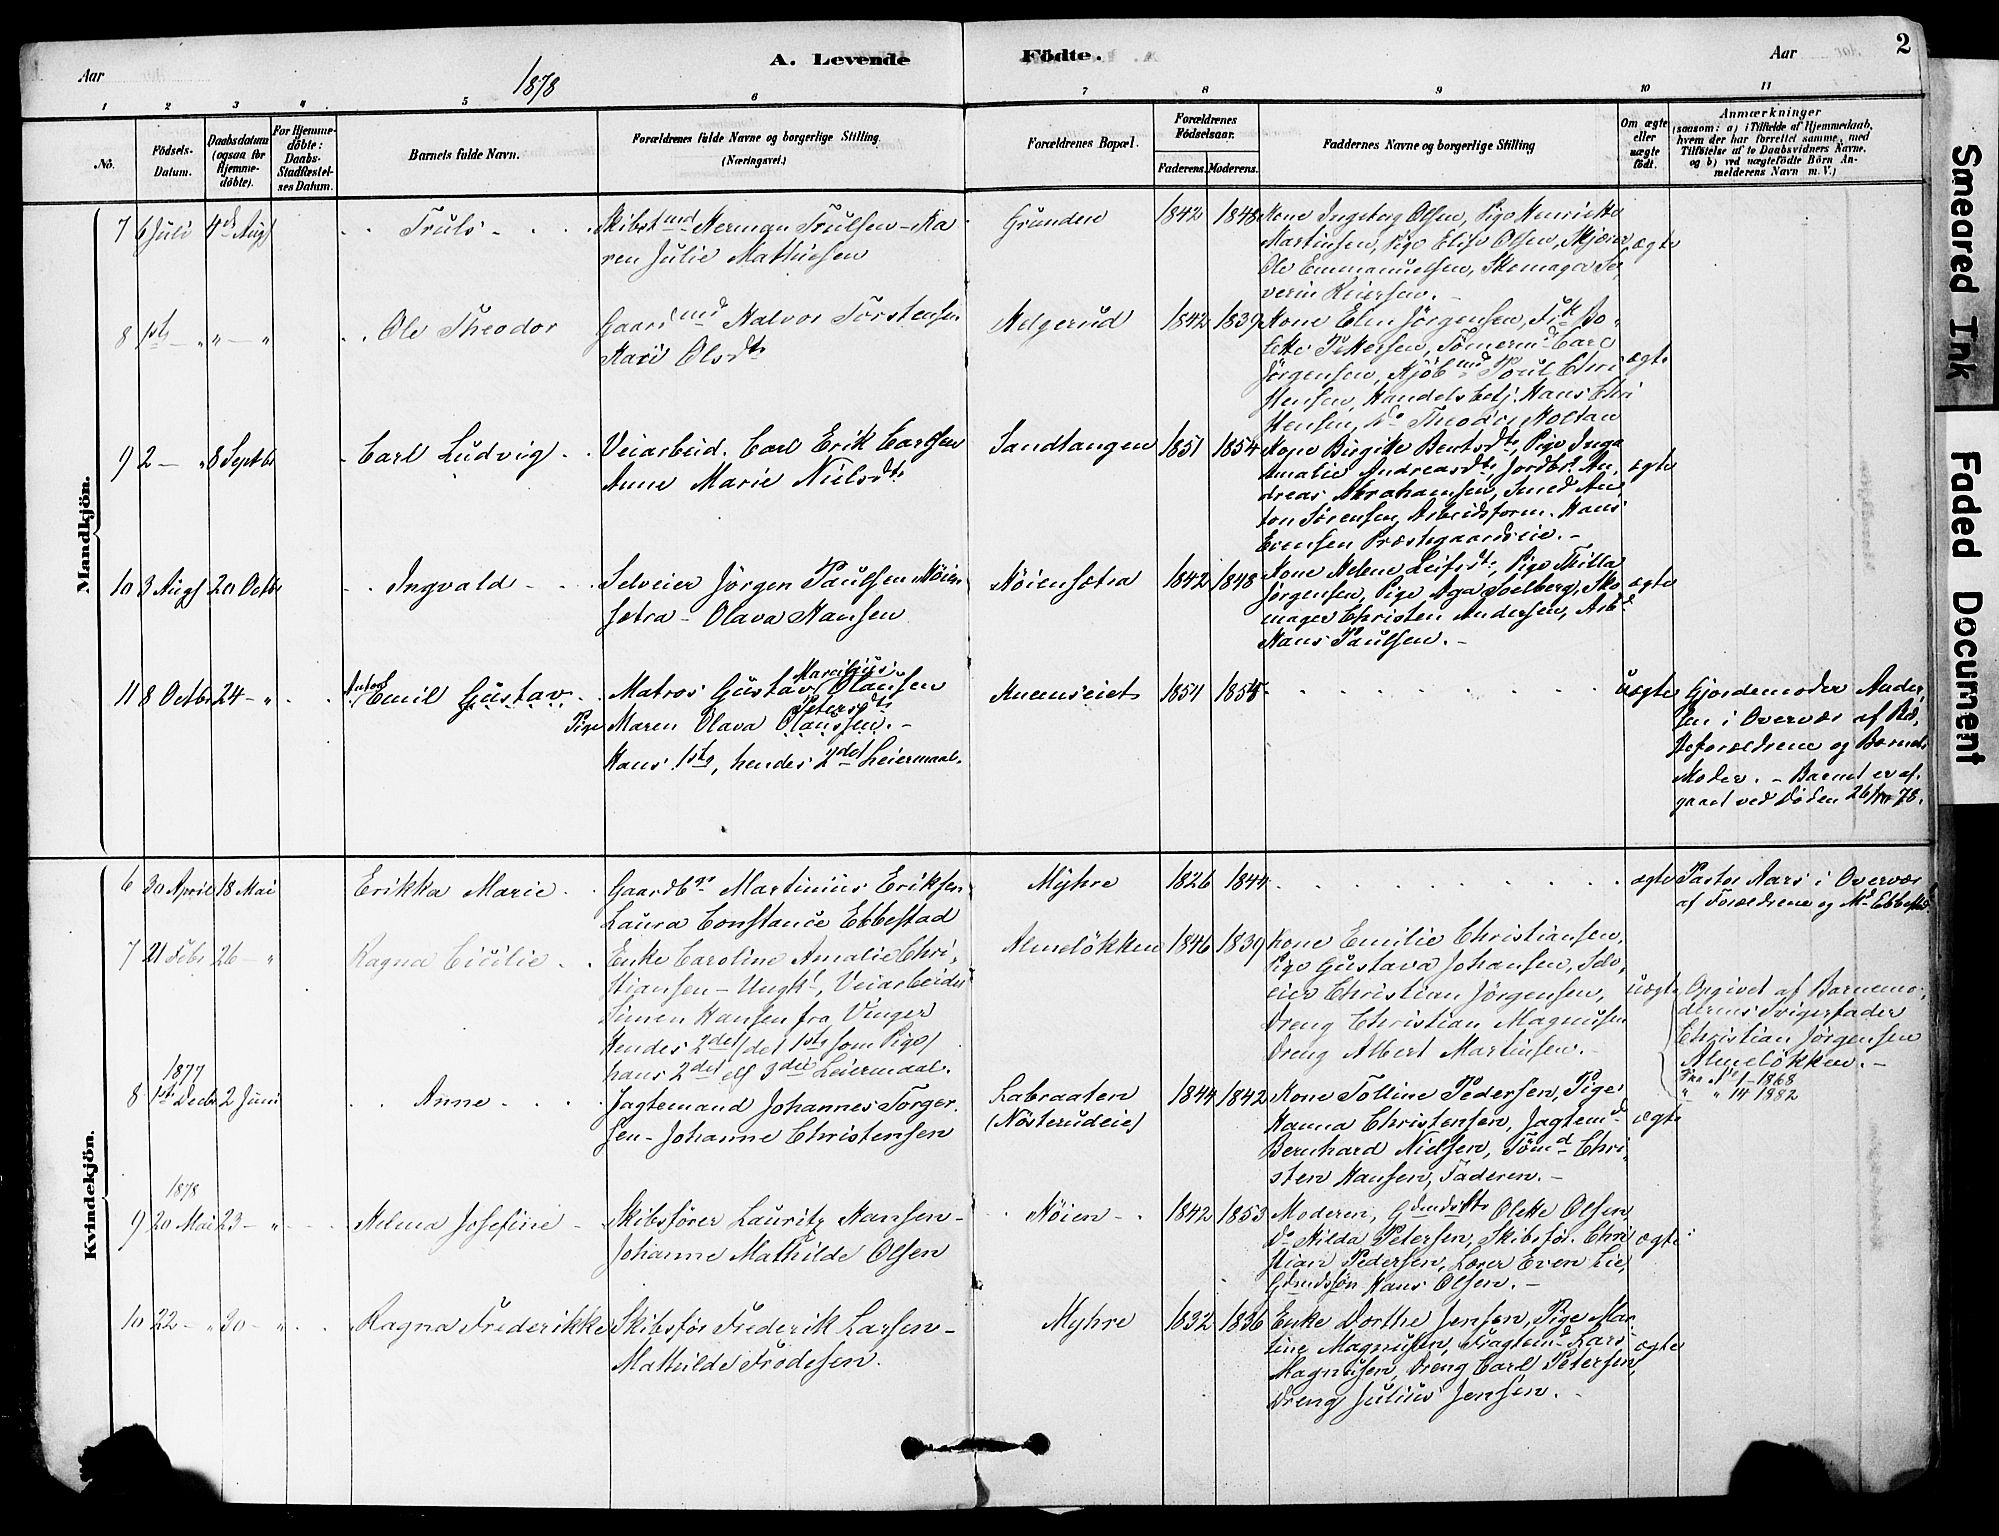 A. Levende Födte.
Aar 1878
Aar 2
1 2 3 4 5 6 7 8 9 10 11
No.
Födsels-Datum.
Daabsdatum (ogsaa for Hjemme-döbte).
For Hjemme-döbte: Daabs-Stadfæstel-ses Datum.
Barnets fulde Navn.
Forældrenes fulde Navne og borgerlige Stilling (Næringsvei.)
Forældrenes Bopæl.
Forældrenes Födselsaar.
Faderens. Moderens.
Faddernes Navne og borgerlige Stilling
Om ægte eller uægte födt.
Anmærkninger
(saasom: a) i Tilfælde af Hjemmedaab,
hvem der har forrettet samme, med
Tilföielse af to Daabsvidners Navne,
og b) ved uægtefödte Börn An-
melderens Navn m. V.)
Mandkjön.
7 6 Juli 4de Aug Truls
Skibstmd Herman Trulsen - Ka
ren Julie Mathiesen
Grunden 1842 1848
Kone Ingeborg Olsen, Pige Henrikke
Martinsen, Pige Elise Olsen, Skjærer
Ole Emmanuelsen, Skomager Se
verin Reiersen. -
ægte
8 1ste - " " - " Ole Theodor
Gaardmd Halvor Torstensen
Kari Olsdtr
Helgerud 1842 1839
Kone Elen Jörgensen, Frk Bo
lette Pettersen, Tömermd Carl
Jörgensen, Kjöbmd Poul Chri
stensen, Handelsbetj. Hans Chri
stensen, Do Theodor Holtan
ægte
9 2 - " 8 Septbr Carl Ludvig
Veiarbeid. Carl Erik Carlsen
Anne Marie Nielsdtr
Sandtangen 1851 1854
Kone Birgitte Berntsdtr, Pige Inga
Amalie Andreasdtr, Jordbr. An
dreas Abrahamsen, Smed An
ton Sörensen, Arbeidsform. Hans
Evensen Præstegaardseie. -
ægte
10 3 Augt 20 Octbr Ingvald
Selveier Jörgen Paulsen Höien
setra - Olava Hansen
Höiensetra 1842 1848
Kone Helene Leifsdtr, Pige Milla
Jörgensen, Pige Aga Solberg, Sko
mager Christen Andersen, Arbd
Hans Paulsen. -
ægte
11 8 Octbr 24 - " Anton Emil Gustav
Matros Gustav Marcilius Olausen
Pige Maren Olava Petersdtr Olaussen. -
Hans 1ste, hendes 2det Leiermaal.
Knemseiet 1851 1855
uægte
Gjordemoder Ander
sen i Overvær af Bed
steforældrene og Barnets
Moder. - Barnet er af
gaaet ved Döden 26/10 78.
Kvindekjön.
6 30 April 18 Mai Erikka Marie
Gaardbr Martinius Eriksen
Laura Constance Ebbestad
Myhre 1826 1844
ægte
Pastor Aars i Overvær
af Forældrene og Md Ebbestad
7 21 Febr 26 - " Ragna Cicilie
Enke Caroline Amalie Chri
stiansen - Ungk., Veiarbeider
Simen Hansen fra Vinger
Hendes 2det (det 1ste som Pige)
hans 2det elf 3die Leiermaal.
Almelökken 1846 1839
Kone Emilie Christiansen,
Pige Gustava Johansen, Selv
eier Christian Jörgensen,
Dreng Christian Magnusen
Dreng Albert Martinsen. -
uægte
Opgivet af Barnemo
derens Svigerfader
Christian Jörgensen
Almelökken. -
Fra No 1 - 1868
" " 14 1882
1877
8 1ste Decbr 2 Juni Anne
Jagtemand Johannes Torger
sen - Johanne Christensen
Labraaten
(Nösterudeie)
1844 1842
Kone Tolline Pedersen, Pige
Hanna Christensen, Jagtemd
Bernhard Nielsen, Tömd Chri
sten Hansen, Faderen. -
ægte
1878
9 20 Mai 23 - " Helma Josefine
Skibsförer Lauritz Hansen -
Johanne Mathilde Olsen
Höien 1842 1853
Moderen, Gdmdsdtr Olette Olsen
Do Hilda Petersen, Skibsför. Chri
stian Pedersen, Lærer Even Lie,
Gdmdssön Hans Olsen. -
ægte
10 22 - " 30 - " Ragna Frederikke
Skibsför Frederik Larsen -
Mathilde Frodesen.
Myhre 1832 1836
Enke Dorthe Jensen, Pige Mar
tine Magnusen, Fragtemd Lars
Magnusen, Dreng Carl Petersen,
Dreng Julius Jensen. -
ægte
Smeared Ink
Faded Document